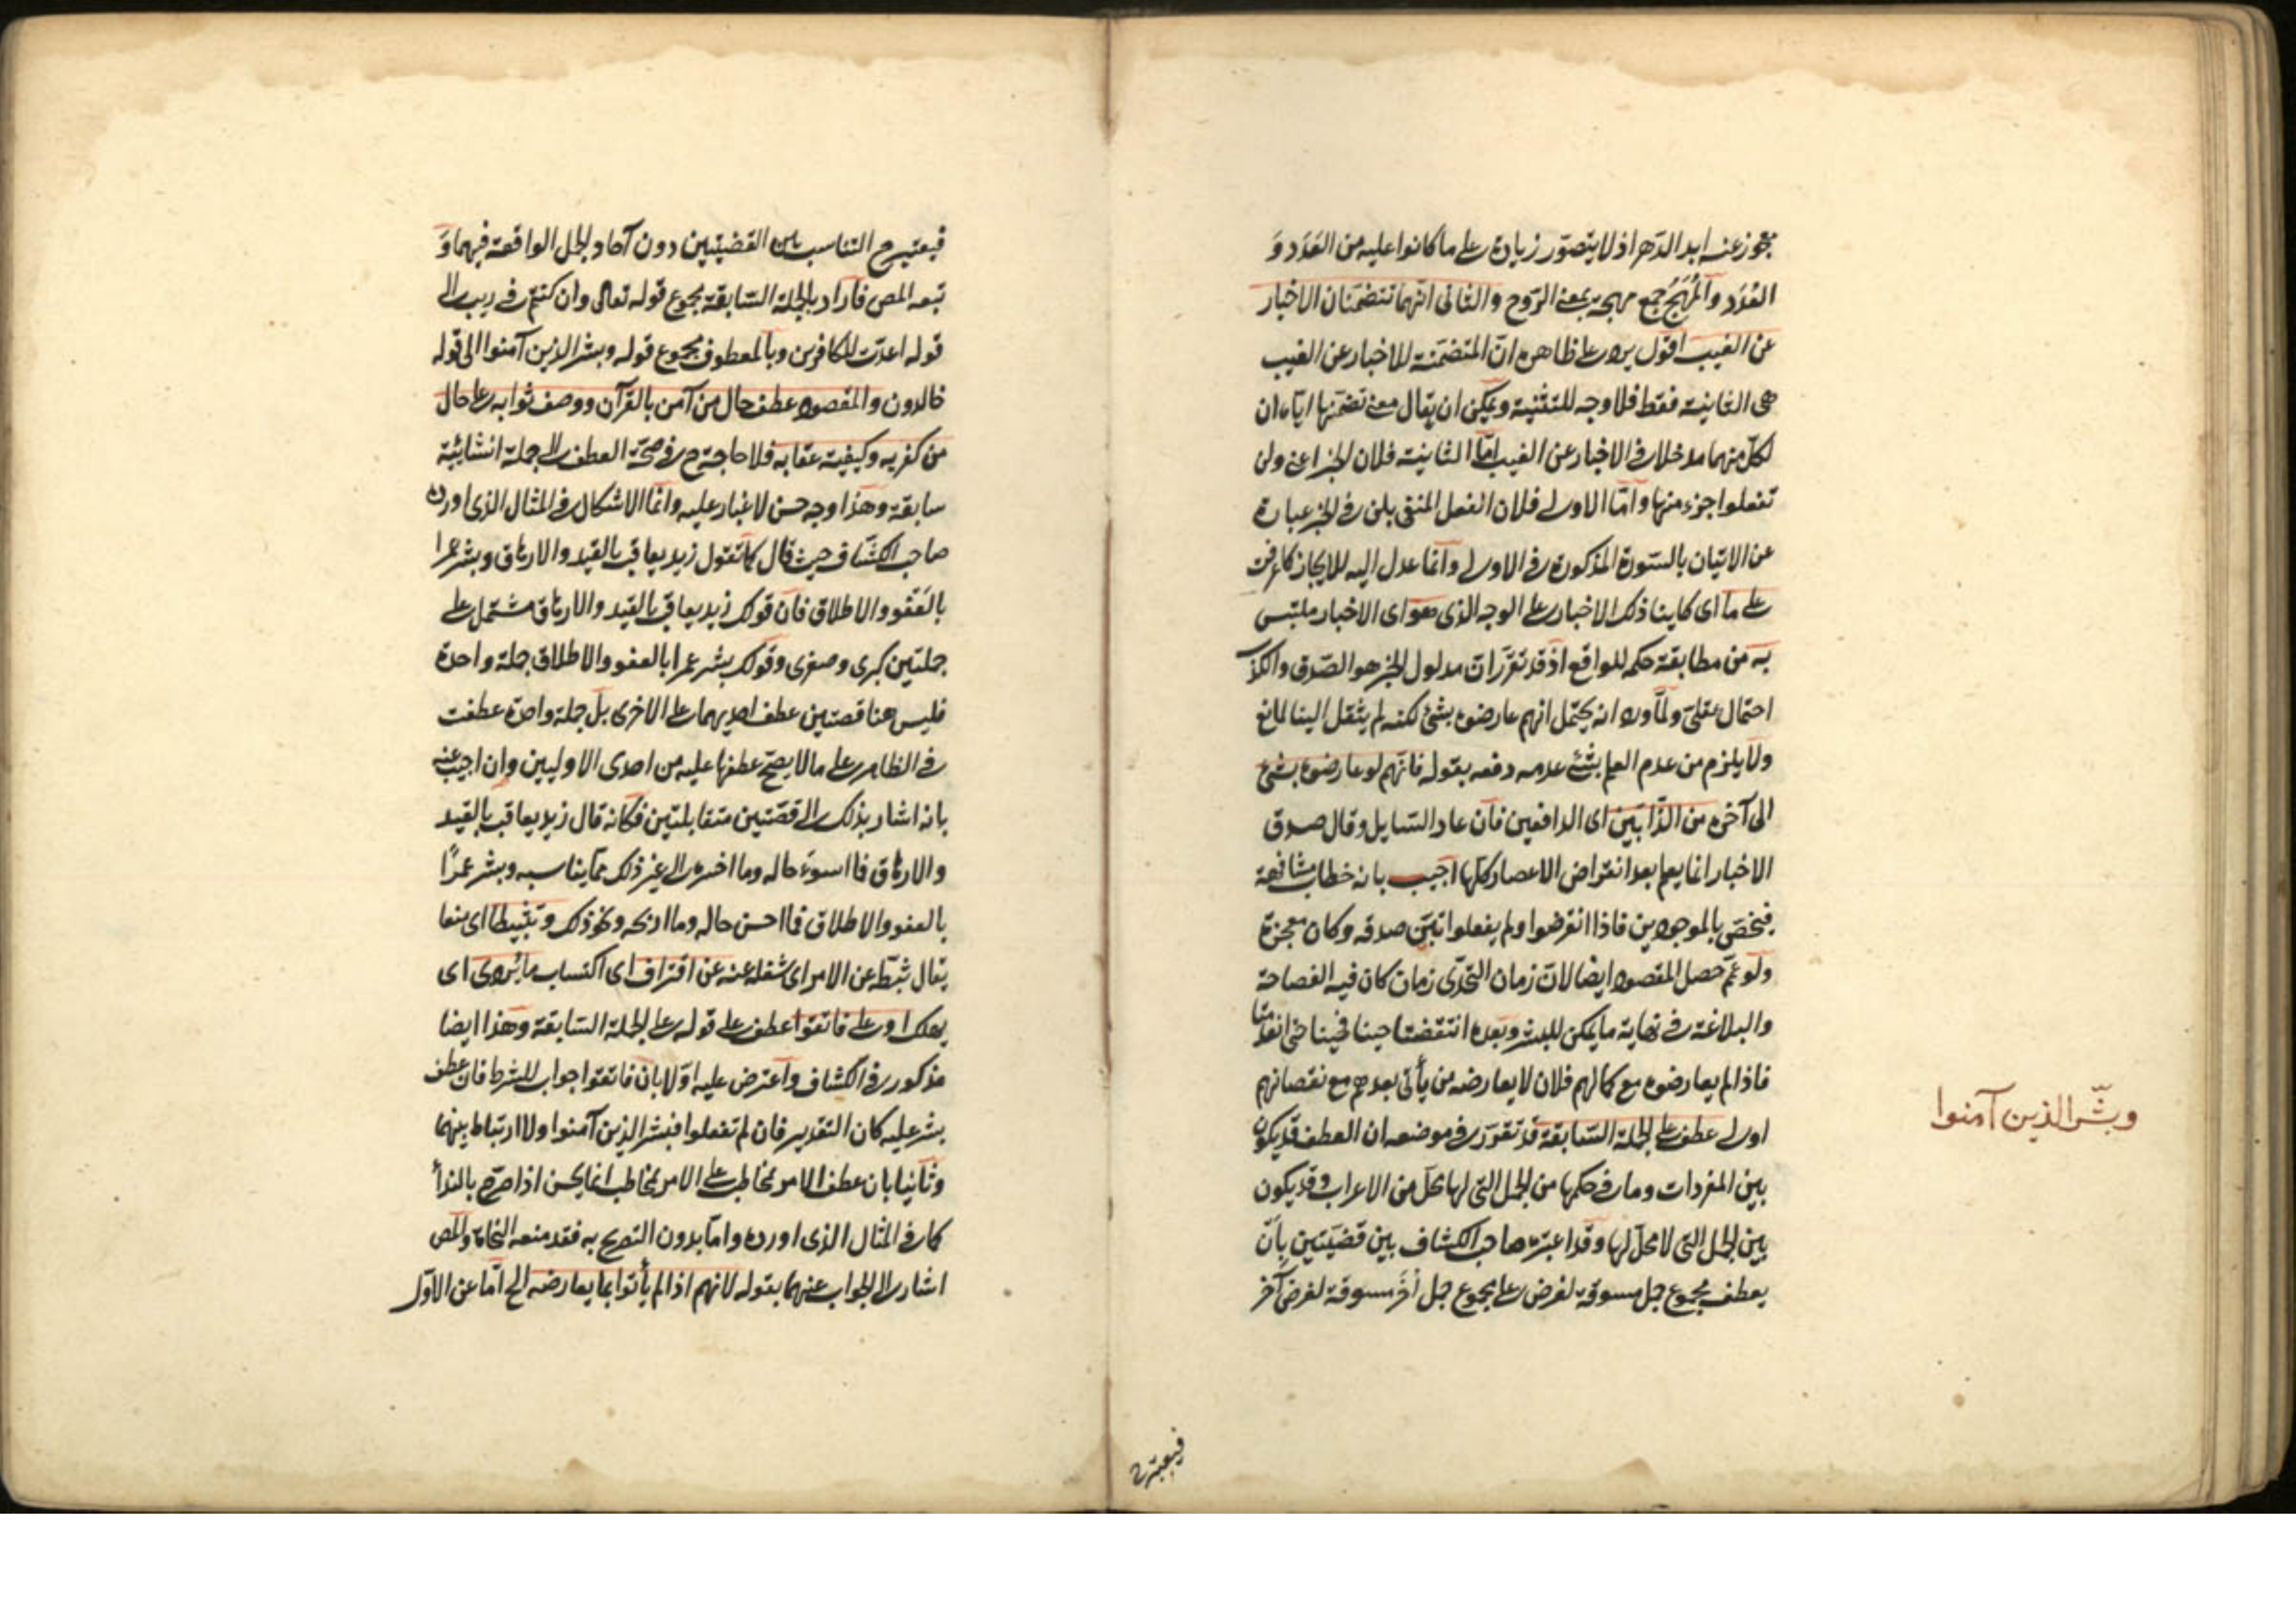 عجوز عنه ابد الدهر اذ لا يتصور زيادة على ما كانوا عليه من العَدَد وَ
العُدَد والمُهَج جمع مهجة بمعنى الروح والثانى انهما تتضمنان الاخبار
عن الغيب اقول يرد على ظاهره ان المتضمنة للاخبار عن الغيب
هى الثانية فقط فلا وجه للتثنية ويمكن ان يقال معنى تضمنهما اياه ان
لكل منهما مدخلا فى الاخبار عن الغيب امّا الثانية فلان الخبر اعنى ولن
تفعلوا جزء منها وامّا الاولى فلان الفعل المنفى بلن فى الخبر عبارة
عن الاتيان بالسورة المذكورة فى الاولى وانما عدل اليه للايجاز كما عرفت
على ما اى كاينا ذلك الاخبار على الوجه الذى هو اى الاخبار ملتبس
به من مطابقة حكمه للواقع اذ قد تقرر ان مدلول الخبر هو الصدق والكذب
احتمال عقلى ولما ورد انه يحتمل انهم عارضوه بشئ لكنه لم ينقل الينا لمانع
ولا يلزم من عدم العلم بشئ عدمه دفعه بقوله فانهم لو عارضوه بشئ
الى آخره من الذّابّين اى الدافعين فان عاد السايل وقال صدق
الاخبار انما يعلم بعد انقراض الاعصار كلها اجيب بانه خطاب مشافهة
فيختص بالموجودين فاذا انقرضوا ولم يفعلوا تبيّن صدقه وكان معجزة
ولو عمّ حصل المقصود ايضا لان زمان التحدّى زمان كان فيه الفصاحة
والبلاغة فى نهاية ما يمكن للبشر وبعده انتقضتا حينا فحينا حتى انعدمتا
فاذا لم يعارضوه مع كمالهم فلان لا يعارضه من يأتى بعدهم مع نقصانهم
اولى عطف على الجملة السابقة قد تقرر فى موضعه ان العطف قد يكون
بين المفردات وما فى حكمها من الجمل التى لها محل من الاعراب وقد يكون
بين الجمل التى لا محل لها وقد اعتبره صاحب الكشاف بين قضيتين بانّ
يعطف مجموع جمل مسوقة لغرض على مجموع جمل اُخَر مسوقة لغرض آخر
وبشّر الذين آمنوا
فيعتبر ح
فيعتبر ح التناسب بين القضيتين دون آحاد الجمل الواقعة فيهما وَ
تبعه المص فاراد بالجملة السابقة مجموع قوله تعالى وان كنتم فى ريب الى
قوله اعدت للكافرين وبالمعطوف مجموع قوله وبشر الذين آمنوا الى قوله
خالدون والمقصود عطف حال من آمن بالقرآن ووصف ثوابه على حال
من كفر به وكيفية عقابه فلا حاجة ح فى صحة العطف الى جملة انشائية
سابقة وهذا وجه حسن لا غبار عليه وانما الاشكال فى المثال الذى اورده
صاحب الكشاف حيث قال كما تقول زيد يعاقب بالقيد والارهاق وبشر عمرا
بالعفو والاطلاق فان قولك زيد يعاقب بالقيد والارهاق مشتمل على
جملتين كبرى وصغرى وقولك بشر عمرا بالعفو والاطلاق جملة واحدة
فليس هنا قصتين عطف احديهما على الاخرى بل جملة واحدة عطفت
فى الظاهر على ما لا يصح عطفها عليه من احدى الاوليين وان اجيب عنه
بانه اشار بذلك الى قصتين متقابلتين فكانه قال زيد يعاقب بالقيد
والارهاق فما اسوء حاله وما اخسره الى غير ذلك مما يناسبه وبشر عمرًا
بالعفو والاطلاق فما احسن حاله وما اربحه ونحو ذلك وتثبيطا اى منعا
يقال ثبّطه عن الامر اى شغله عنه عن اقتراف اى اكتساب ما يُردى اى
يهلك او على فاتقوا عطف على قوله على الجملة السابقة وهذا ايضا
مذكور فى الكشاف واعترض عليه اوّلا بان فاتقوا جواب للشرط فان عطف
بشر عليه كان التقدير فان لم تفعلوا فبشر الذين آمنوا ولا ارتباط بينهما
وثانيا بان عطف الامر لمخاطب على الامر لمخاطب انما يحسن اذا صرّح بالندأ
كما فى المثال الذى اورده واما بدون التصريح به فقد منعه النحاة والمص
اشار الى الجواب عنهما بقوله لانهم اذا لم يأتوا بما يعارضه الخ امّا عن الاوّل